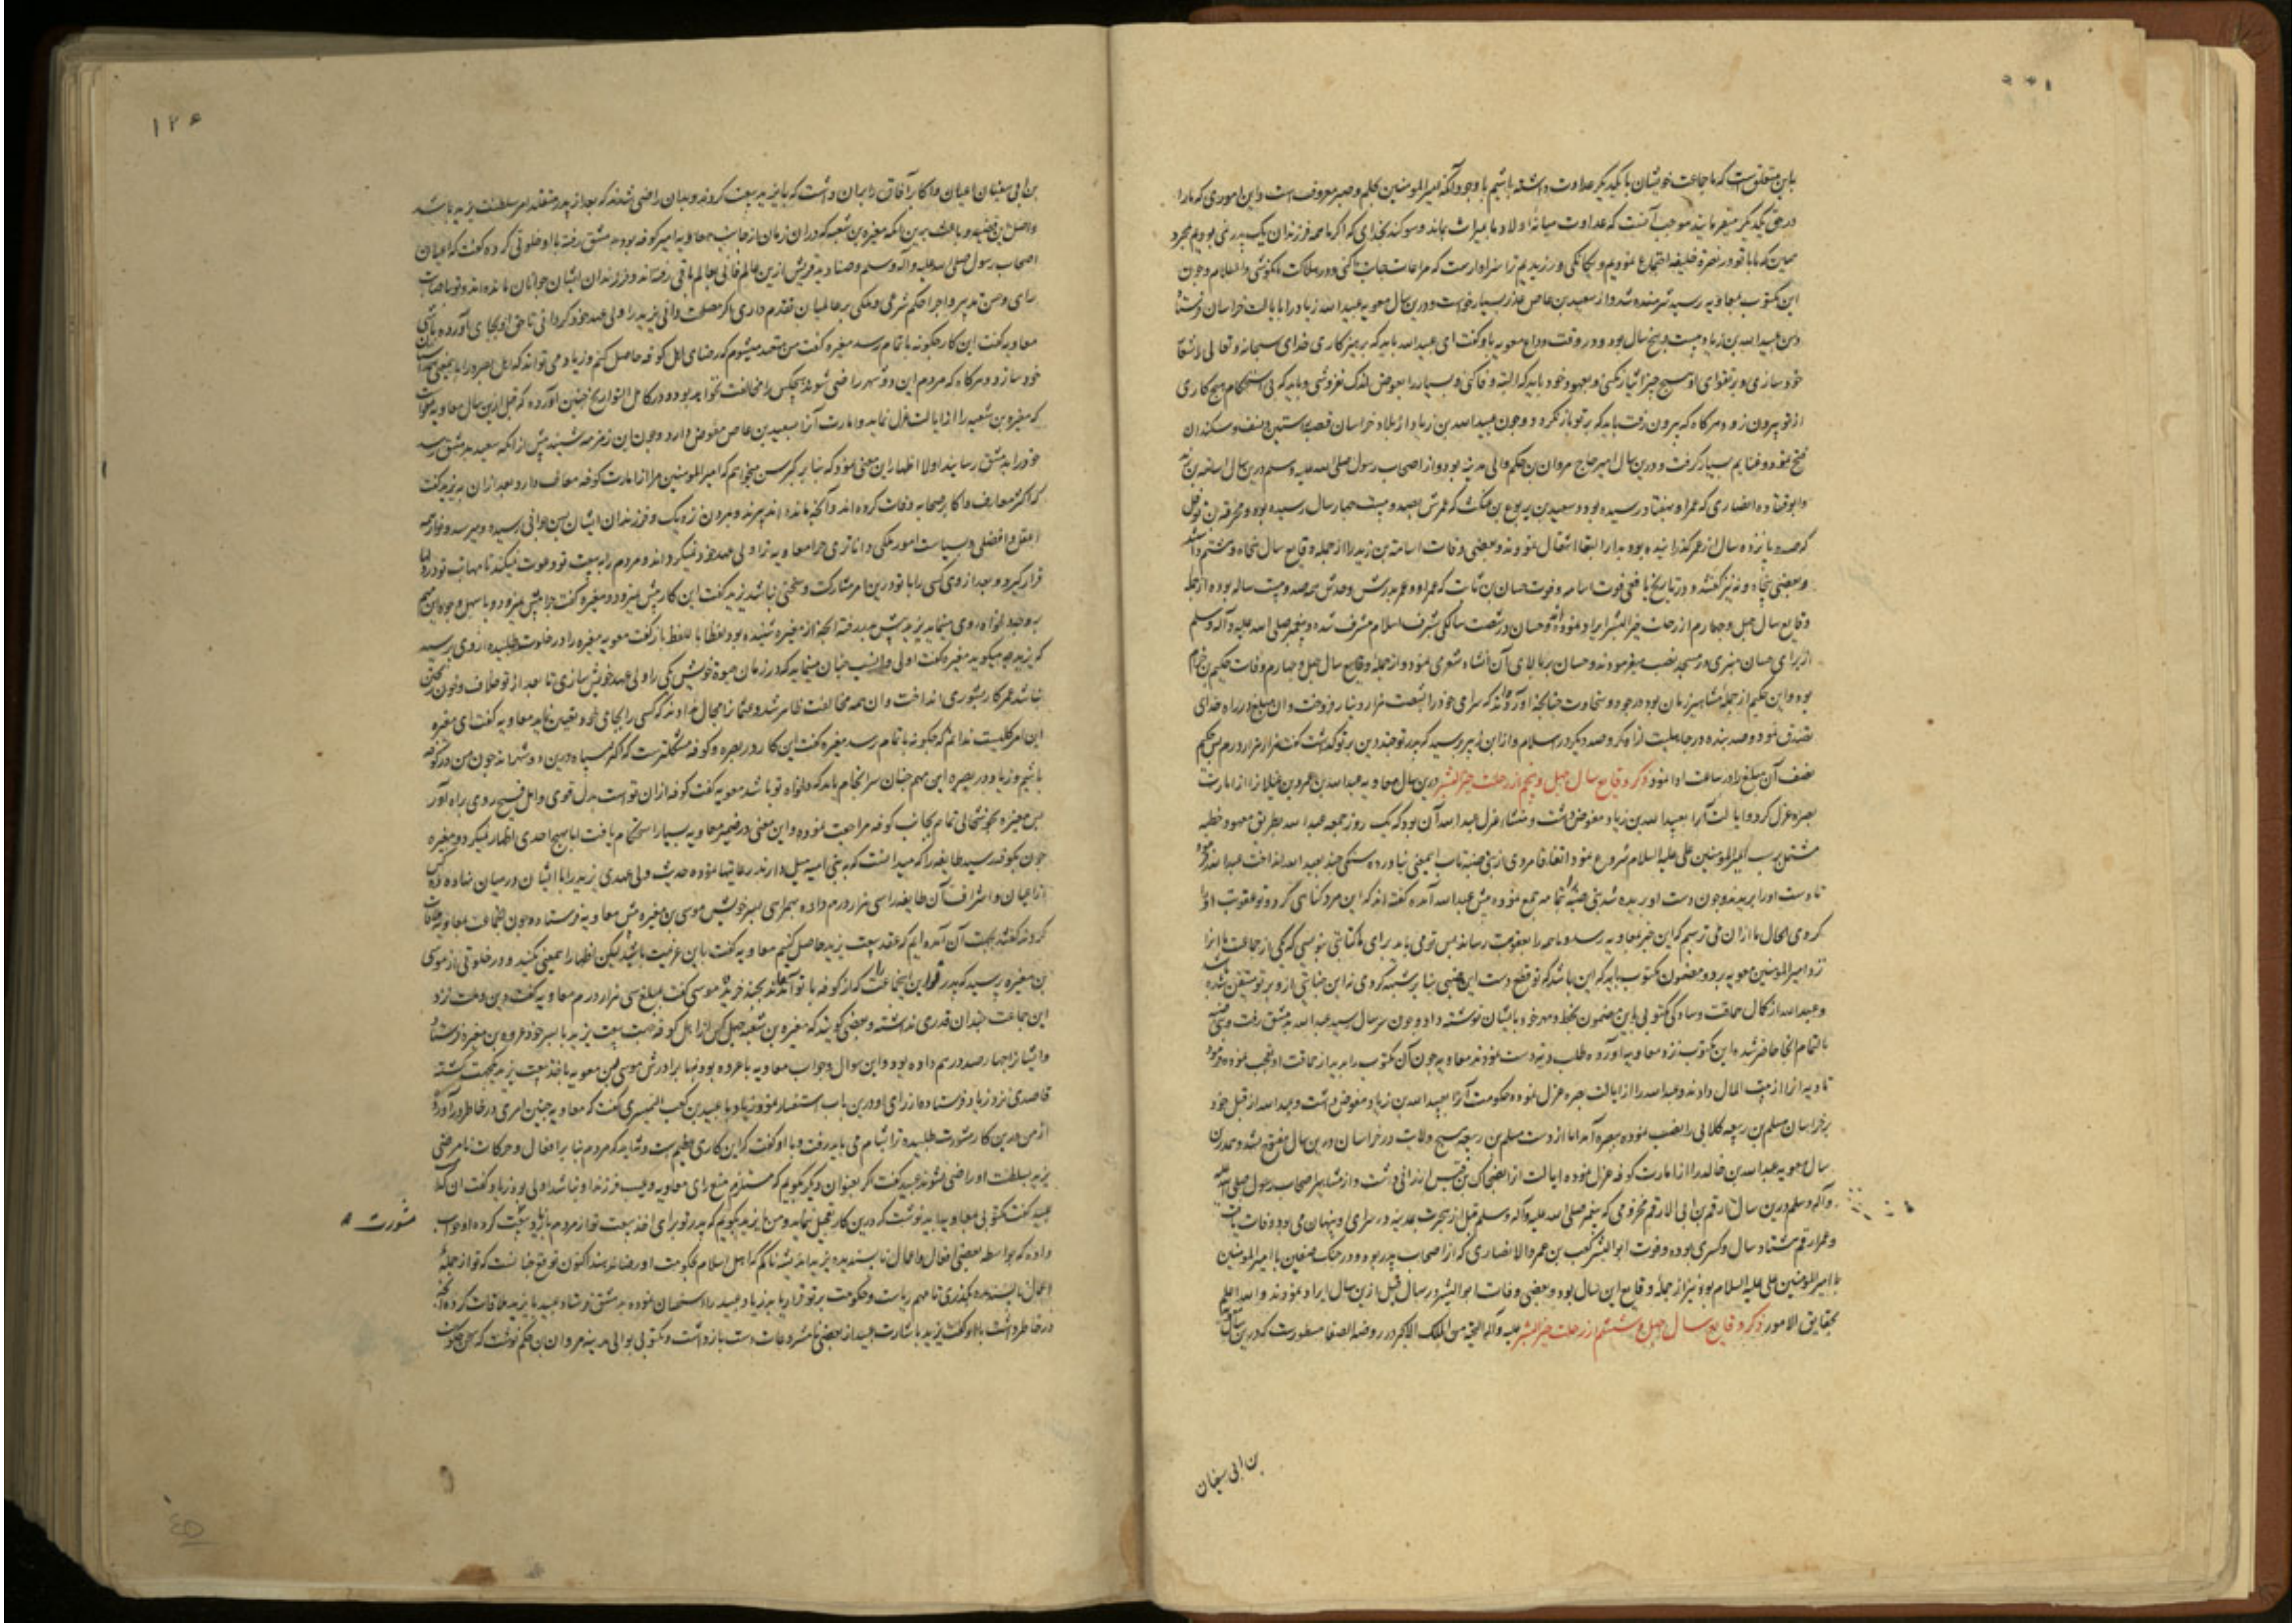 باین متعلق است که ما جماعت خویشان با یکدیگر عداوت داشته باشیم با وجود آنکه امیرالمومنین بحلم و صبر معروف است و این اموری که ما را
در حق یکدیگر میفرمایند موجب آنست که عداوت میانه اولاد ما بمیراث بماند و سوکند بخدای که اکر ما همه فرزندان یک پدر نمی بودیم بمجرد
همین که ما با تو در نصرة خلیفه اجتماع نمودیم و یکانکی ورزیدیم ترا سزاوار است که مراعات جانب ما کنی و در هلاکت ما نکوشی والسلام و چون
این مکتوب بمعاویه رسید شرمنده شد و از سعید بن عاص عذر بسیار خواست و درین سال معویه عبیدالله زیاد را بایالت خراسان فرستاد
و سن عبیدالله بن زیاد بیست و پنج سال بود و در وقت وداع معویه با او کفت ای عبیدالله باید که پرهیزکاری خدای سبحانه و تعالی را شعار
خود سازی و بر تقوای او هیچ چیز اختیار نکنی و بعهود خود باید که البته وفا کنی و بسیار را بعوض اندک نفروشی و باید که بی استحکام هیچ کاری
از تو بیرون نرود و هرکاه که بیرون رفت باید که بر تو باز نکردد و چون عبیدالله بن زیاد از بلاد خراسان قصبه راستین و نسف و بیکند را
فتح نمود و غنایم بسیار کرفت و درین سال امیر حاج مروان بن حکم والی مدینه بود و از اصحاب رسول صلی الله علیه وسلم درین سال اسامه بن زید
و ابو قتاده انصاری که عمر او بهفتاد رسیده بود و سعید بن یربوع بن عنکث که عمرش بصد و بیست چهار سال رسیده بود و مخرمة بن نوفل
که صد و پانزده سال از عمر کذرانیده بود بدار البقا انتقال نمودند و بعضی وفات اسامة بن زید را از جمله وقایع سال پنجاه و هشتم داشته
و بعضی پنجاه و نه نیز کفتند و در تاریخ یافعی فوت اسامه و فوت حسان بن ثابت که عمر او و عمر پدرش و جدش همه صد و بیست ساله بوده از جمله
وقایع سال چهل و چهارم از رحلت خیرالبشر ایراد نموده و حسان در شصت سالکی بشرف اسلام مشرف شده و پیغمبر صلی الله علیه و آله وسلم
از برای حسان منبری در مسجد نصب میفرمودند و حسان بر بالای آن انشاء شعری نمود و از جمله وقایع سال چهل و چهارم وفات حکیم بن حزام
بوده و این حکیم از جمله مشاهیر زمان بود در جود و سخاوت چنانچه آورده‌اند که سرای خود را بشصت هزار دینار فروخت و آن مبلغ در راه خدای
تصدق نمود و صد بنده در جاهلیت آزاد کرد و صد دیکر در اسلام و از ابن زبیر پرسید که پدر تو چند دین بر تو کذاشت کفت هزار هزار درم پس حکیم
نصف آن مبلغ را در ساعت ادا نمود ذکر وقایع سال چهل و پنجم از رحلت خیرالبشر درین سال معاویه عبدالله بن عمرو بن غیلان را از امارت
بصره عزل کرد و ایالت آنرا بعبیدالله بن زیاد مفوض داشت و منشاء عزل عبدالله آن بود که یک روز جمعه عبدالله بطریق معهود خطبه
مشتمل بر سب امیرالمومنین علی علیه السلام شروع نمود اتفاقا مردی از بنی ضبه تاب این معنی نیاورده سنکی چند بعبدالله انداخت عبدالله فرمود
تا دست او را بریدند و چون دست او بریده شد بنی ضبه تمامه جمع نموده پیش عبدالله آمده کفته اند که این مرد کناهی کرد و تو عقوبت او
کردی الحال ما از ان می ترسیم که این خبر بمعاویه رسد و ما همه را بعقوبت رساند پس تو می باید برای ما کتابتی بنویسی که یکی از جماعت ما آنرا
نزد امیرالمومنین معویه برد و مضمون مکتوب باید که این باشد که تو قطع دست این ضبی بنا بر شبهه کردی نه این جنایتی از و بر تو متیقن شده
و عبدالله از کمال حماقت و سادکی مکتوبی باین مضمون بخط و مهر خود بایشان نوشته داد و چون سر سال رسید عبدالله به دمشق رفت و بنی ضبه
بالتمام آنجا حاضر شده این مکتوب نزد معاویه آورده طلب دیه دست نمودند معاویه چون آن مکتوب را بدید از حماقت او تعجب نموده فرمود
تا دیه او را از بیت المال دادند و عبدالله را از ایالت بصره عزل نموده حکومت آنرا بعبیدالله بن زیاد مفوض داشت و عبیدالله از قبل خود
بر خراسان مسلم بن ربیعه کلابی را نصب نموده ببصره آمد اما از دست مسلم بن ربیعه هیچ ولایت در خراسان درین سال مفتوح نشد و همدرین
سال معویه عبدالله بن خالد را از امارت کوفه عزل نموده ایالت آنرا بضحاک بن قیس ارزانی داشت و از مشاهیر اصحاب رسول صلی الله علیه
و آله وسلم درین سال ارقم بن ابی الارقم مخزومی که پیغمبر صلی الله علیه و آله وسلم قبل از هجرت بمدینه در سرای وی پنهان می بود وفات یافت
و عمر ارقم هشتاد سال و کسری بوده و فوت ابوالیسر کعب بن عمرو الانصاری که از اصحاب بدر بوده و در جنک صفین با امیرالمومنین
با امیرالمومنین علی علیه السلام بود نیز از جمله وقایع این سال بود و بعضی وفات ابوالیسر در سال قبل ازین سال ایراد نمودند والله اعلم
بحقایق الامور ذکر وقایع سال چهل و ششم از رحلت خیرالبشر علیه و آله التحیة من الملک الاکبر در روضة الصفا مسطور است که درین سال معاویه
بن ابی سفیان
۱۲۵
بن ابی سفیان اعیان و اکابر آفاق را بران داشت که با یزید بیعت کردند و بدان راضی شدند که بعد از پدر متقلد امر سلطنت یزید باشد
و اصل این قضیه و باعث برین آنکه مغیره بن شعبه که دران زمان از جانب معاویه امیر کوفه بود به دمشق رفته با او خلوتی کرده کفت که اعیان
اصحاب رسول صلی الله علیه و آله وسلم و صنادید قریش ازین عالم فانی بعالم باقی رفته‌اند و فرزندان ایشان جوانان مانده اند و تو باصابت
رای و حسن تدبیر و اجراء حکم شرعی و ملکی بر عالمیان تقدم داری اکر مصلحت دانی یزید را ولی عهد خود کردانی تا حق او بجای آورده باشی
معاویه کفت این کار چکونه باتمام رسد مغیره کفت من متعهد میشوم که رضای اهل کوفه حاصل کنم و زیاد می تواند که اهل بصره را باین معنی همداستان
خود سازد و هرکاه که مردم این دو شهر راضی شوند هیچکس را مخالفت نخواهد بود و در کامل التواریخ چنین آورده که قبل ازین سال معاویه میخواست
که مغیره بن شعبه را از ایالت عزل نماید و امارت آنرا بسعید بن عاص مفوض دارد و چون این زمزمه شنید پیش از آنکه سعید به دمشق رسد
خود را به دمشق رسانید اولا اظهار این معنی نمود که بنا بر کبر سن میخواهم که امیرالمومنین مرا از امارت کوفه معاف دارد بعد ازان به یزید کفت
که اکثر معارف و اکابر صحابه وفات کرده اند و آنچه مانده اند پیرند و بمردن نزدیک و فرزندان ایشان بسن جوانی رسیده و میرسد و تو از همه
اعقل و افضلی و بسیاست امور ملکی داناتری چرا معاویه ترا ولی عهد خود نمیکرداند و مردم را به بیعت تو دعوت نمیکند تا مهابت تو در دلها
قرار کیرد و بعد از وی کسی را با تو درین امر مشارکت و سخنی نباشد یزید کفت این کار پیش میرود و مغیره کفت چرا پیش نمیرود و باسهل وجوه این مهم
بر وجه دلخواه روی مینماید یزید پیش پدر رفته آنچه از مغیره شنیده بود لفظا باللفظ باز کفت معویه مغیره را در خلوت طلبیده از وی پرسید
که یزید چه میکوید مغیره کفت اولی و انسب چنان مینماید که در زمان حیوة خویش یکی را ولی عهد خویش سازی تا بعد از تو خلاف و خون ریختن
نباشد عمر کار بشوری انداخت و ان همه مخالفت ظاهر شد و عثمان را مجال ندادند که کسی را بجای خود تعیین نماید معاویه کفت ای مغیره
این امر کلیست ندانم که چکونه باتمام رسد مغیره کفت این کار در بصره و کوفه مشکلترست که اکثر سپاه درین دو شهراند چون من در کوفه
باشیم و زیاد در بصره این مهم چنان سرانجام یابد که دلخواه تو باشد معویه کفت کوفه ازان تو است بدل قوی و امل فسیح روی براه آور
پس مغیره بخوشحالی تمام بجانب کوفه مراجعت نموده و این معنی در ضمیر معاویه بسیار استحکام یافت اما بهیچ احدی اظهار نمیکرد و مغیره
چون بکوفه رسید طایفه را که میدانست که به بنی امیه میل دارند رعایتها نموده حدیث ولی عهدی یزید را با ایشان درمیان نهاده کس
از اعیان و اشراف آن طایفه را سی هزار درم داده بهمراهی پسر خویش موسی بن مغیره پیش معاویه فرستاده چون آنجماعت معاویه ملاقات
کردند کفتند بجهت آن آمده ایم که عقد بیعت یزید حاصل کنیم معاویه کفت باین عزیمت باشید لیکن اظهار این معنی نکنید و در خلوتی از موسی
بن مغیره پرسید که پدر تو دین این جماعت را که از کوفه با تو آمده‌اند بچند خرید موسی کفت بمبلغ سی هزار درم معاویه کفت دین و ملت نزد
این جماعت چندان قدری نداشته و بعضی کویند که مغیره بن شعبه چهل کس را از اهل کوفه جهت بیعت یزید با پسر خود عروه بن مغیره فرستاد
و ایشانرا چهار صد درهم داده بود و این سوال و جواب معاویه با عروه بود نه با برادرش موسی پس معویه باخذ بیعت یزید یکجهت کشته
قاصدی نزد زیاد فرستاده از رای او درین باب استفسار نمود زیاد با عبید بن کعب النمیری کفت که معاویه چنین امری در خاطر آورده
از من درین کار مشورت طلبیده ترا بشام می باید رفت و با او کفت که این کاری عظیم است و شاید که مردم بنا بر افعال و حرکات نامرضی
یزید بسلطنت او راضی نشوند عبید کفت اکر بعنوان دیکر بکویم که مستلزم منع رای معاویه و عیب فرزند او نباشد اولی بود زیاد کفت ان کدام
عبید کفت مکتوبی بمعاویه باید نوشت که درین کار تعجیل ننماید و من با یزید بکویم که پدر تو برای اخذ بیعت تو از مردم با زیاد مشورت کرده او جواب
مشورت ۸
داده که بواسطه بعضی افعال و اعمال ناپسندیده یزید اندیشه ناکم که اهل اسلام بحکومت او رضا ندهند اکنون توقع چنانست که تو از جمله
اعمال ناپسندیده بکذری تا مهم ریاست و حکومت بر تو قرار یابد زیاد عبید را استحسان نموده به دمشق فرستاد عبید با یزید ملاقات کرده آنچه
در خاطر داشت با او کفت یزید باشارت عبید از بعضی نامشروعات دست بازداشت و مکتوبی بوالی مدینه مروان بن حکم نوشت که سن من